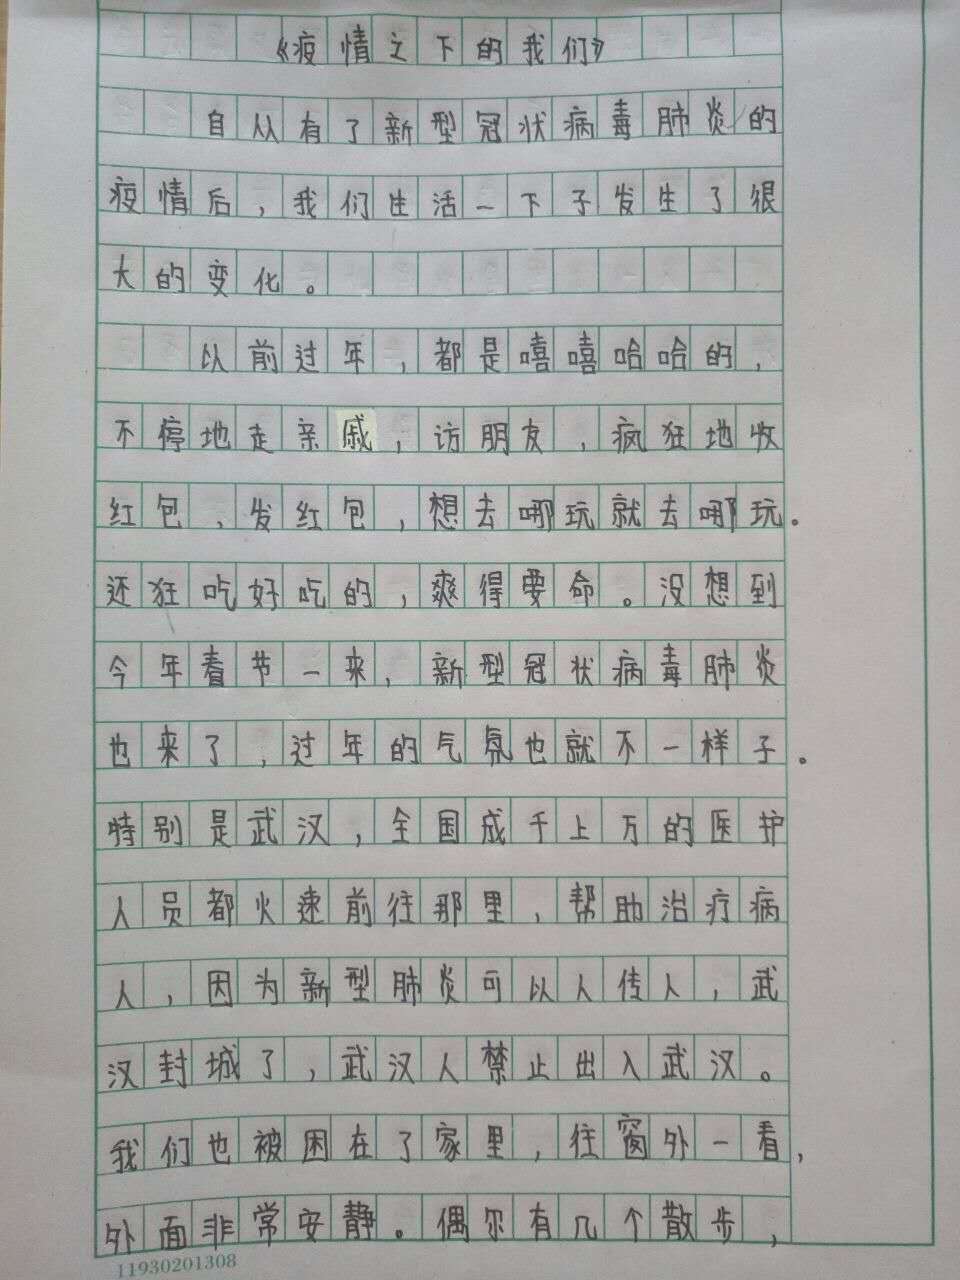 《疫情之下的我们》
自从有了新型冠状病毒肺炎的
疫情后，我们生活一下子发生了很
大的变化。
以前过年，都是嘻嘻哈哈的，
不停地走亲戚，访朋友，疯狂地收
红包，发红包，想去哪玩就去哪玩。
还狂吃好吃的，爽得要命。没想到
今年春节一来，新型冠状病毒肺炎
也来了，过年的气氛也就不一样子。
特别是武汉，全国成千上万的医护
人员都火速前往那里，帮助治疗病
人，因为新型肺炎可以人传人，武
汉封城了，武汉人禁止出入武汉。
我们也被困在了家里，往窗外一看，
外面非常安静。偶尔有几个散步，
11930201308